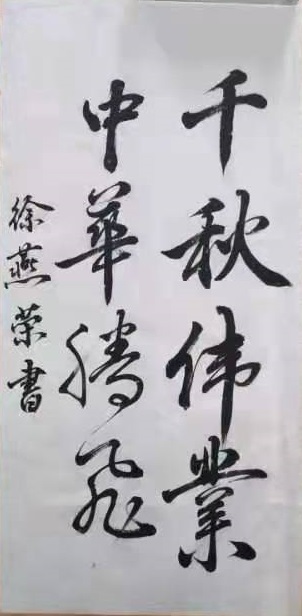 千秋伟業
中華腾飛
徐燕荣書